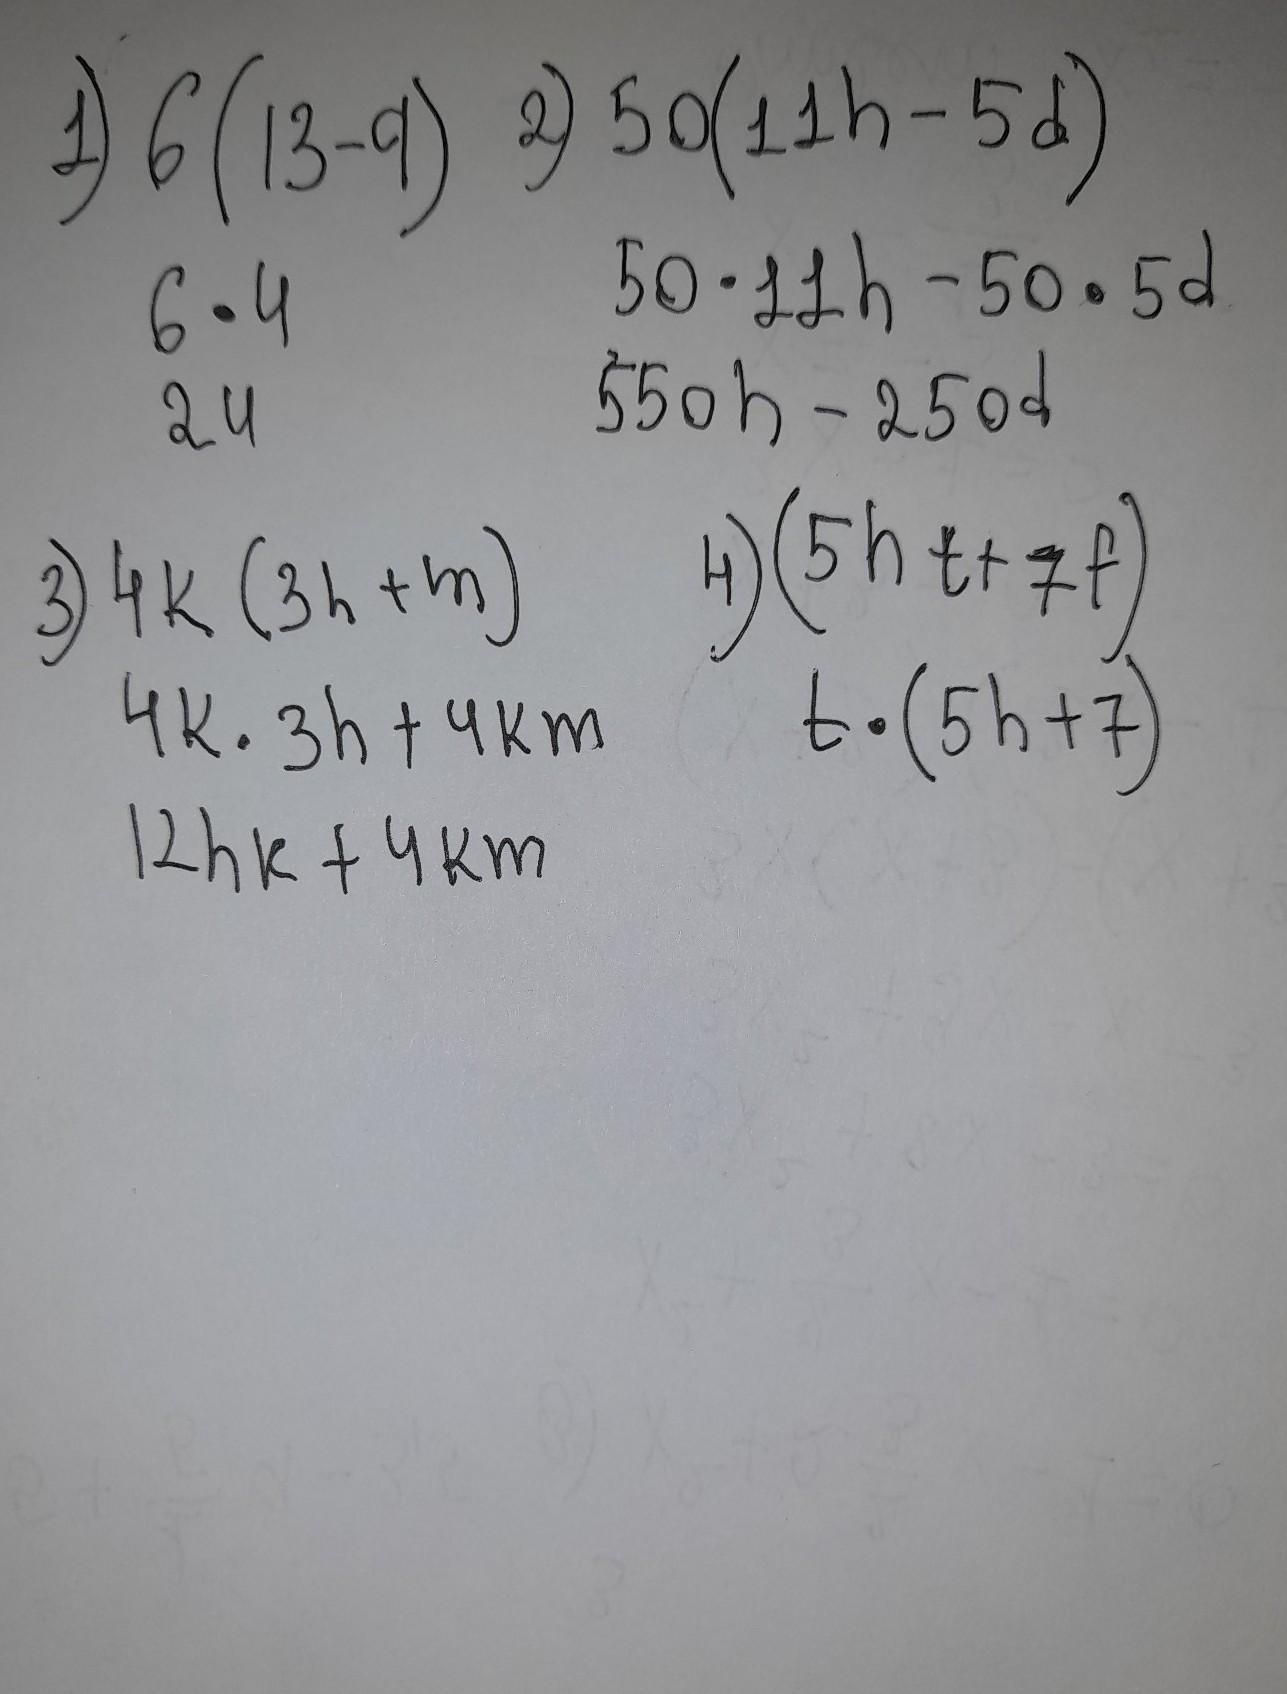 1) 6(13-9)
6·4
24
2) 50(11h-5d)
50·11h-50·5d
550h-250d
3) 4k(3h+m)
4k·3h+4km
12hk+4km
4) (5ht+7f)
t·(5h+7)